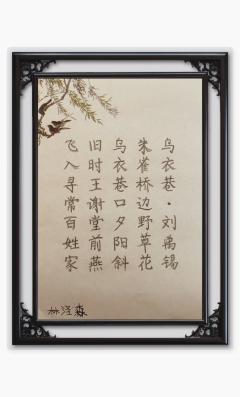 乌衣巷·刘禹锡
朱雀桥边野草花
乌衣巷口夕阳斜
旧时王谢堂前燕
飞入寻常百姓家
林泾淼